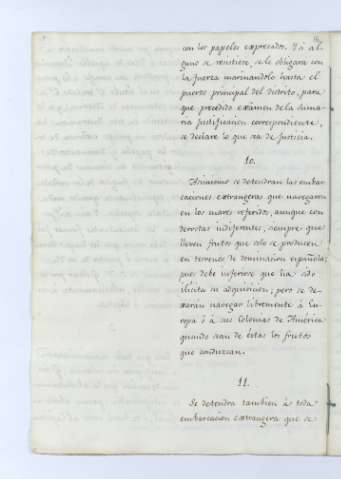 con los papeles expresados. Y si al-
guno se resistiere, se le obligara con
la fuerza marinandolo hasta el
puerto principal del distrito, para
que precedido exâmen de la suma-
ria justificacion correspondiente,
se declare lo que sea de justicia.
10.
Asimismo se detendran las embar-
caciones extrangeras que navegaren
en los mares referidos, aunque con
derrotas indiferentes, siempre que
lleven frutos que solo se producen
en terrenos de dominacion española;
pues debe inferirse que ha sido
ilicita su adquisicion; pero se de-
xarán navegar libremente á Eu-
ropa ó á sus Colonias de América
quando sean de éstas los frutos
que conduzcan.
11.
Se detendra tambien á toda
embarcacion extrangera que se